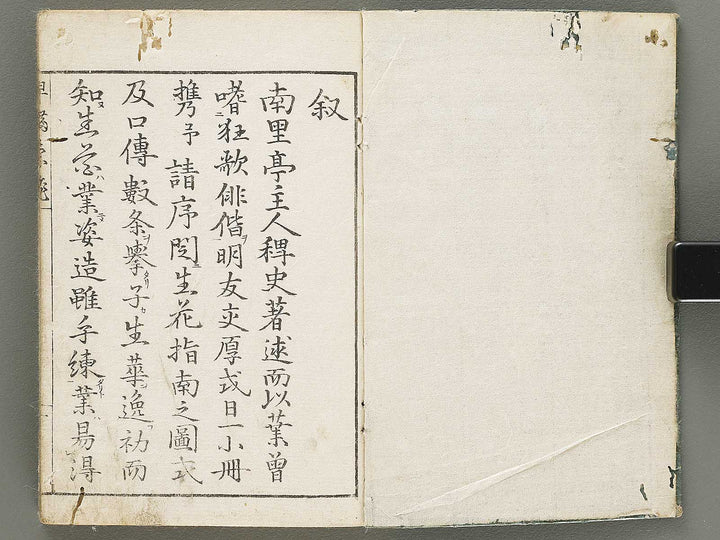 叙
南里亭主人稗史著述而以業曽
嗜狂歌俳偕明友交厚或日一小冊
携予請序閲生花指南之圖式
及口傳數条擧子生華逸初而
知生花業姿造雖手練業易得